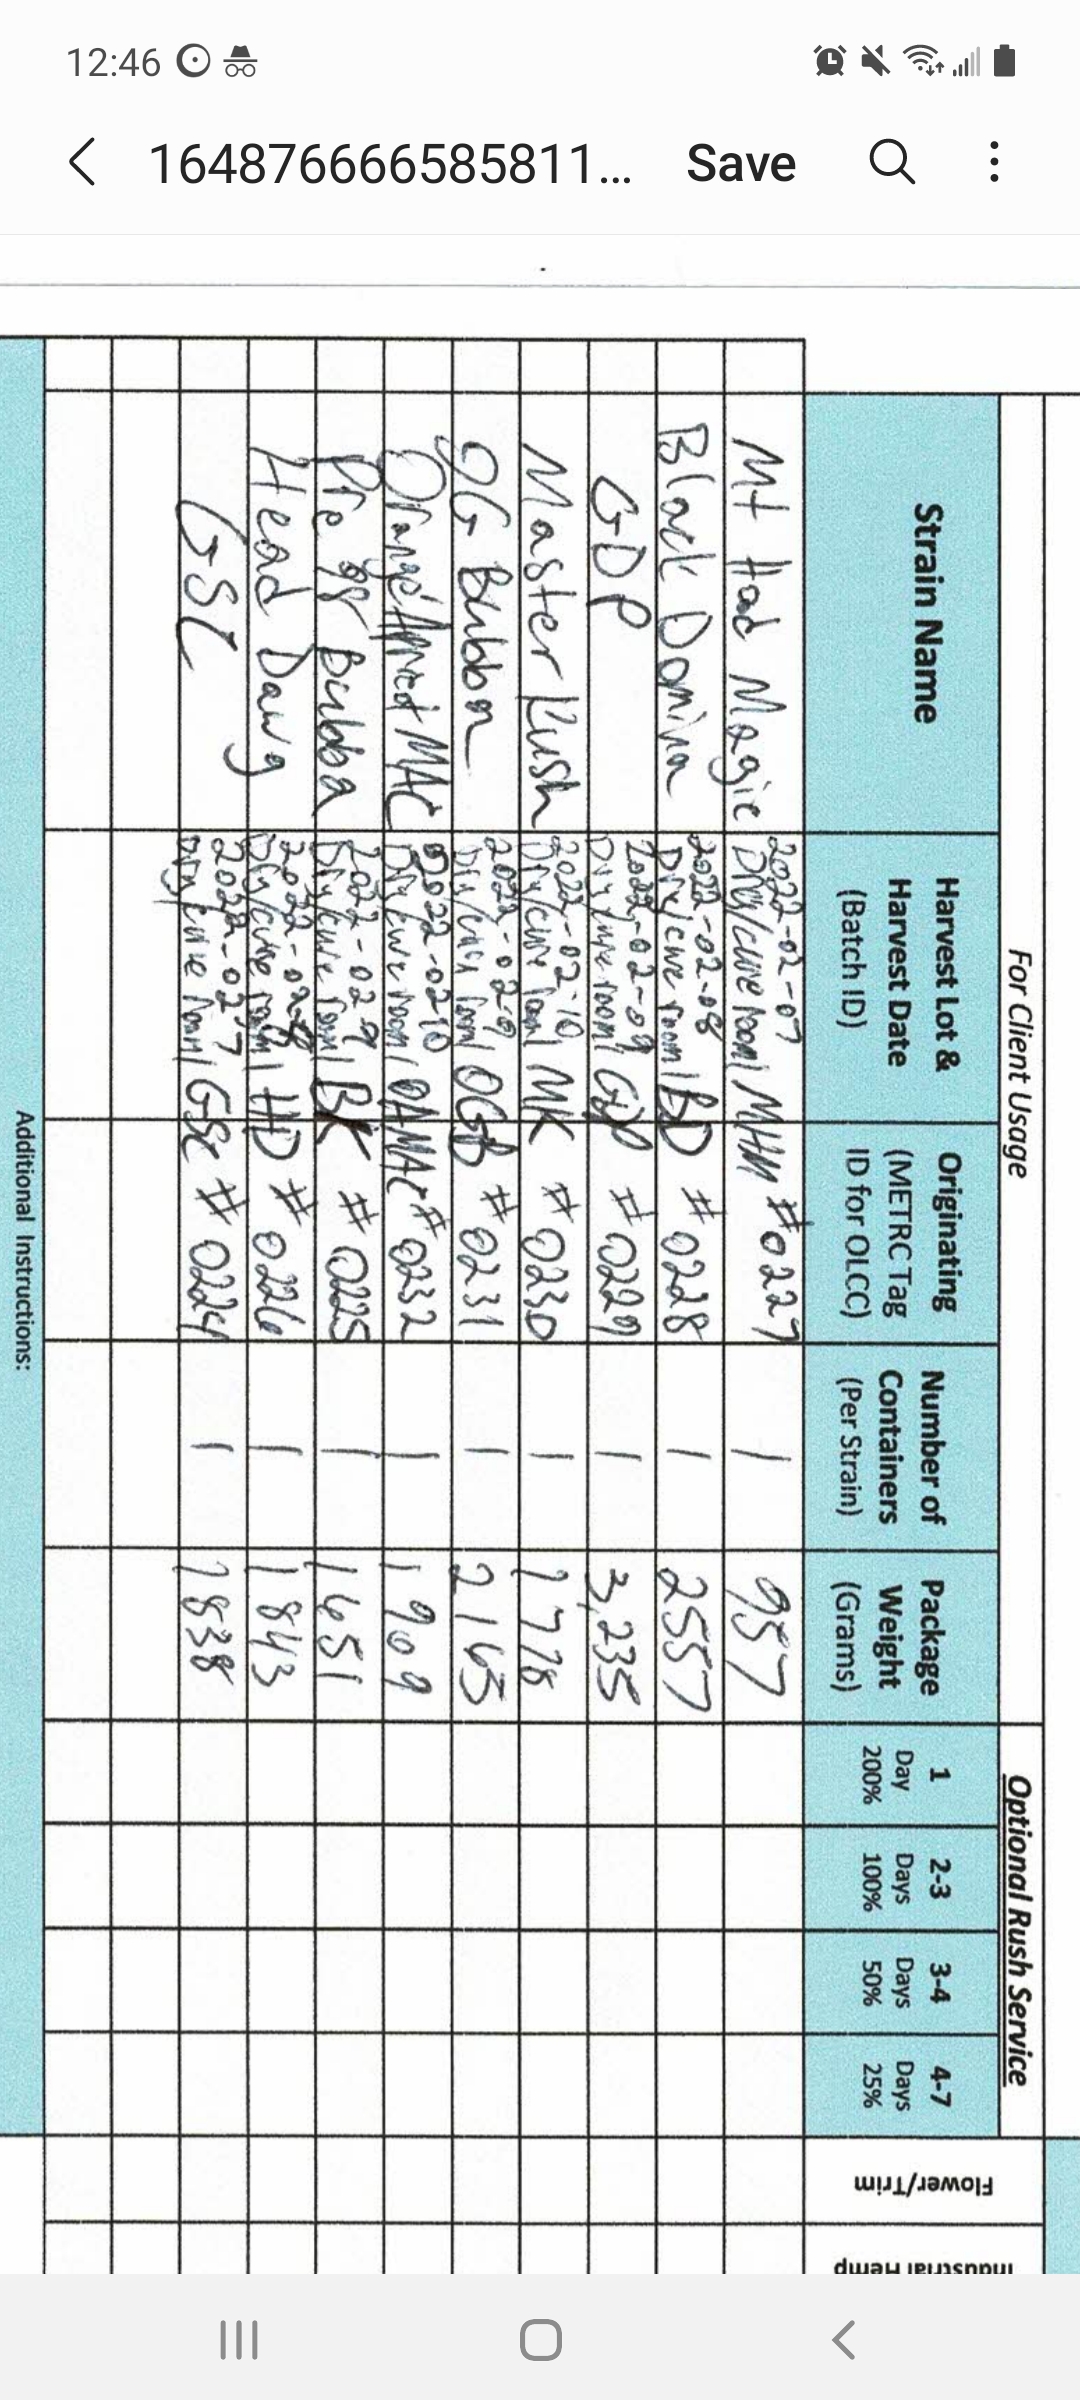 12:46
164876666585811... Save
For Client Usage
Optional Rush Service
Strain Name
Harvest Lot & Harvest Date (Batch ID)
Originating (METRC Tag ID for OLCC)
Number of Containers (Per Strain)
Package Weight (Grams)
1 Day 200%
2-3 Days 100%
3-4 Days 50%
4-7 Days 25%
Flower/Trim
Industrial Hemp
Mt Hood Magic 2022-02-07 Dry/cure room/ MHM #0227 1 957
Black Domina 2022-02-08 Dry/cure room/ BD #0228 1 2557
GDP 2022-02-09 Dry/cure room/ GDP #0229 1 3,235
Master Kush 2022-02-10 Dry/cure room/ MK #0230 1 1778
OG Bubba 2022-02-9 Dry/cure room/ OGB #0231 1 2165
Orange Apricot MAC 2022-02-10 Dry/cure room/ OAMAC #0232 1 1909
Pre 98 Bubba 2022-02-9 Dry/cure room/ BK #0225 1 1651
Head Dawg 2022-02-8 Dry/cure room/ HD #0226 1 1843
GSC 2022-02-7 Dry/cure room/ GSC #0224 1 2838
Additional Instructions: